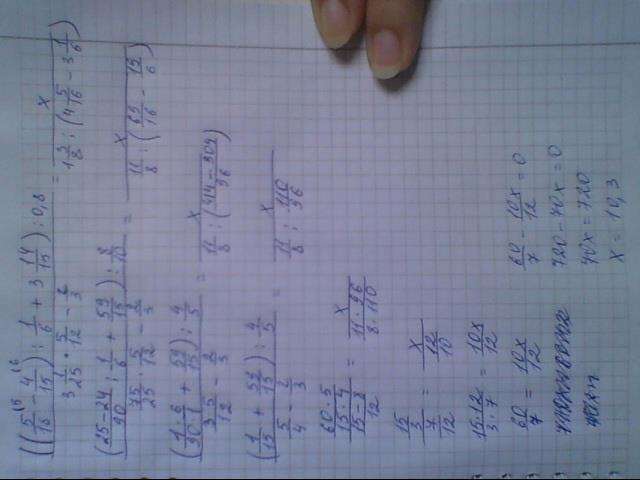 (((5/16 - 4/15) : 1/6 + 3 14/15) : 0,8) / (3 3/25 · 5/12 - 2/3) = x / (1 3/8 : (4 5/16 - 3 1/6))
((25-24)/90 : 1/6 + 59/15) : 8/10 / (75/25 · 5/12 - 2/3) = x / (11/8 : (69/16 - 19/6))
((1·6)/(90·1) + 59/15) : 4/5 = x / (11/8 : (414-304)/96)
(1/15 + 59/15) : 4/5 / (5/4 - 2/3) = x / (11/8 : 110/96)
(60·5)/(15·4) / (15-8)/12 = x / (11·96)/(8·110)
= x / (12/10)
(15·12)/(3·7) = 10x/12
60/7 = 10x/12
60/7 - 10x/12 = 0
720 - 70x = 0
70x = 720
x = 10,3